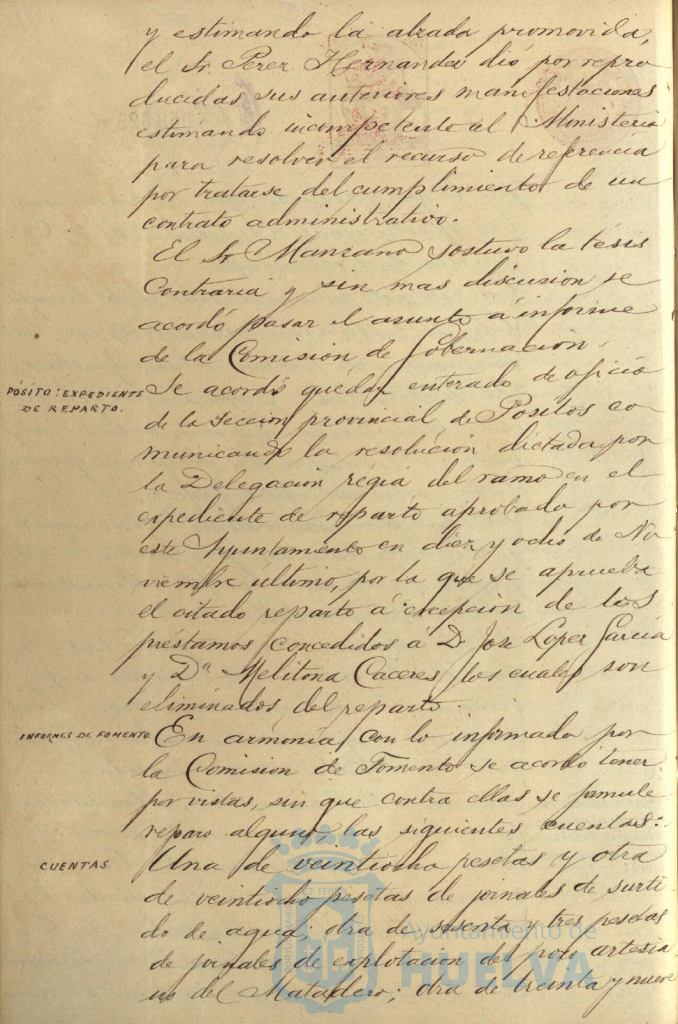 y estimando la alzada promovida,
el Sr. Perez Hernandez dió por repro
ducidas sus anteriores manifestaciones
estimando incompetente al Ministerio
para resolver el recurso de referencia
por tratarse del cumplimiento de un
contrato administrativo.
El Sr Manzano sostuvo la tésis
contraria y sin mas discusion se
acordó pasar el asunto á informe
de la Comision de Gobernacion.
PÓSITO: EXPEDIENTE
DE REPARTO.
Se acordó quedar enterado de oficio
de la seccion provincial de Positos co
municando la resolucion dictada por
la Delegacion regia del ramo en el
expediente de reparto aprobado por
este Ayuntamiento en diez y ocho de No
viembre último, por la que se aprueba
el citado reparto á excepcion de los
prestamos concedidos á D. Jose Lopez Garcia
y Dª Melitona Caceres, los cuales son
eliminados del reparto.
INFORMES DE FOMENTO
En armonia con lo informado por
la Comision de Fomento se acordó tener
por vistas, sin que contra ellas se formule
reparo alguno, las siguientes cuentas:
CUENTAS.
Una de veintiocho pesetas y otra
de veintiocho pesetas de jornales de surti
do de agua; otra de sesenta y tres pesetas
de jornales de explotacion del pozo artesia
no del Matadero; otra de treinta y nueve
Ayuntamiento de
HUELVA